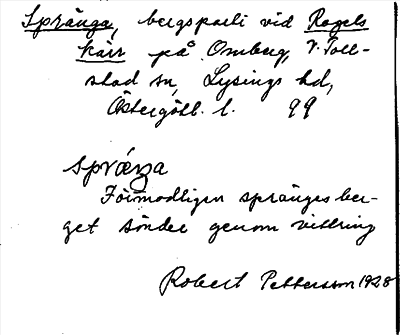 Spränga, bergsparti vid Rogels
kärr på Omberg, V. Toll-
stad sn, Lysings hd,
Östergötl. l. 99
spræŋa
Förmodligen spränges ber-
get sönder genom vittring
Robert Pettersson 1928